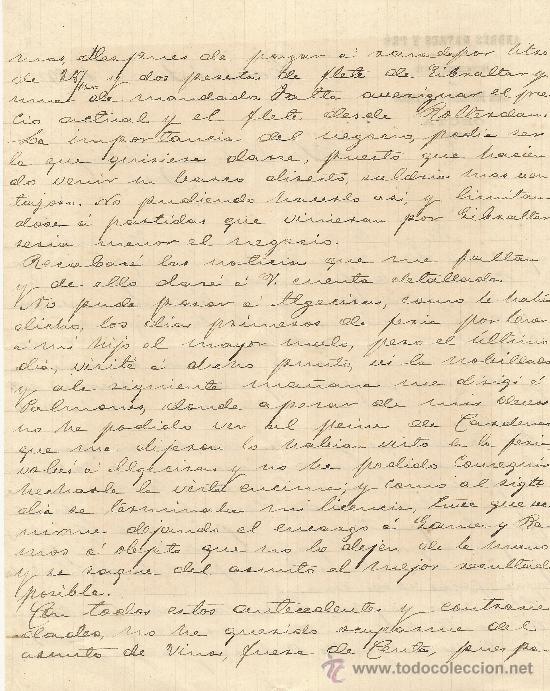 mas, despues de pagar á razon de por
de y dos pesetas de flete de Gibraltar y
una de mandado. Falta averiguar el pre-
cio actual y el flete desde Rotterdam.
La importancia del negocio, podia ser
la que quisiera darse, puesto que hacien
do venir un barco abierto, saldria mas ven
tajoso. No pudiendo hacerlo asi, y limitan
dose á partidas que vinieran por Gibraltar
seria menor el negocio.
Recabaré las noticias que me faltan
y de ello daré á V. cuenta detallada.
No pude pasar á Algeciras, como le habia
dicho, los dias primeros de feria por tener
á mi hijo el mayor malo, pero el ultimo
dia, visité á dicho punto, vi la
y al siguiente mañana me dirigí á
Palmones, donde apesar de mis deseos
no he podido ver al de Cardenas
que me dijeron lo habian visto en la feria
volví á Algeciras y no he podido conseguir
hecharle la vista encima; y como al sigte
dia se terminaba mi licencia, tuve que ve
nirme dejando el encargo á y Ra
mos á objeto que no lo dejen de la mano
y se saque del asunto el mejor resultado
posible.
Con todos estos antecedentes y contrarie
dades, no he querido ocuparme del
asunto de Vinos, fuera de Ceuta, pues pa-
todocoleccion
www.todocoleccion.net